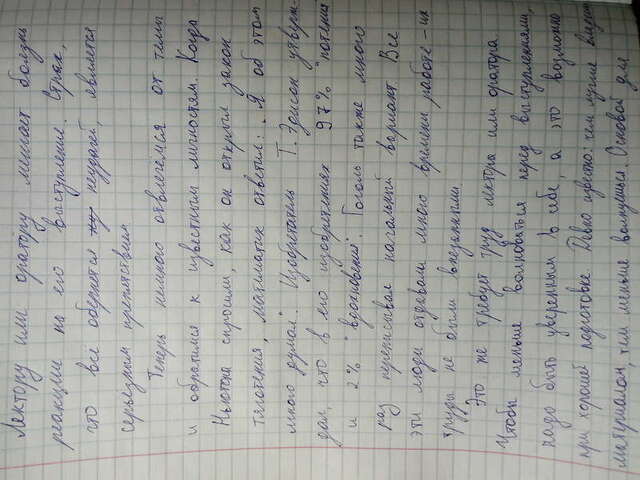 Лектору или оратору мешает боязнь
реакции на его выступление. Страх,
что всё обернётся неудачей, является
серьезным препятствием
Теперь немного отвлечёмся от темы
и обратимся к известным личностям. Когда
Ньютона спросили, как он открыл закон
тяготения, математик ответил: „Я об этом
много думал". Изобретатель Т. Эдисон утверж-
дал, что в его изобретениях 97% "потения
и 2% "вдохновения". Гоголь также много
раз переписывал начальный вариант. Все
эти люди отдавали много времени работе – их
труды не были внезапными.
Это же требует труд лектора или оратора.
Чтобы меньше волноваться перед выступлениями,
надо быть уверенным в себе, а это возможно
при хорошей подготовке. Давно известно: чем лучше владеешь
материалом, тем меньше волнуешься. Основой для